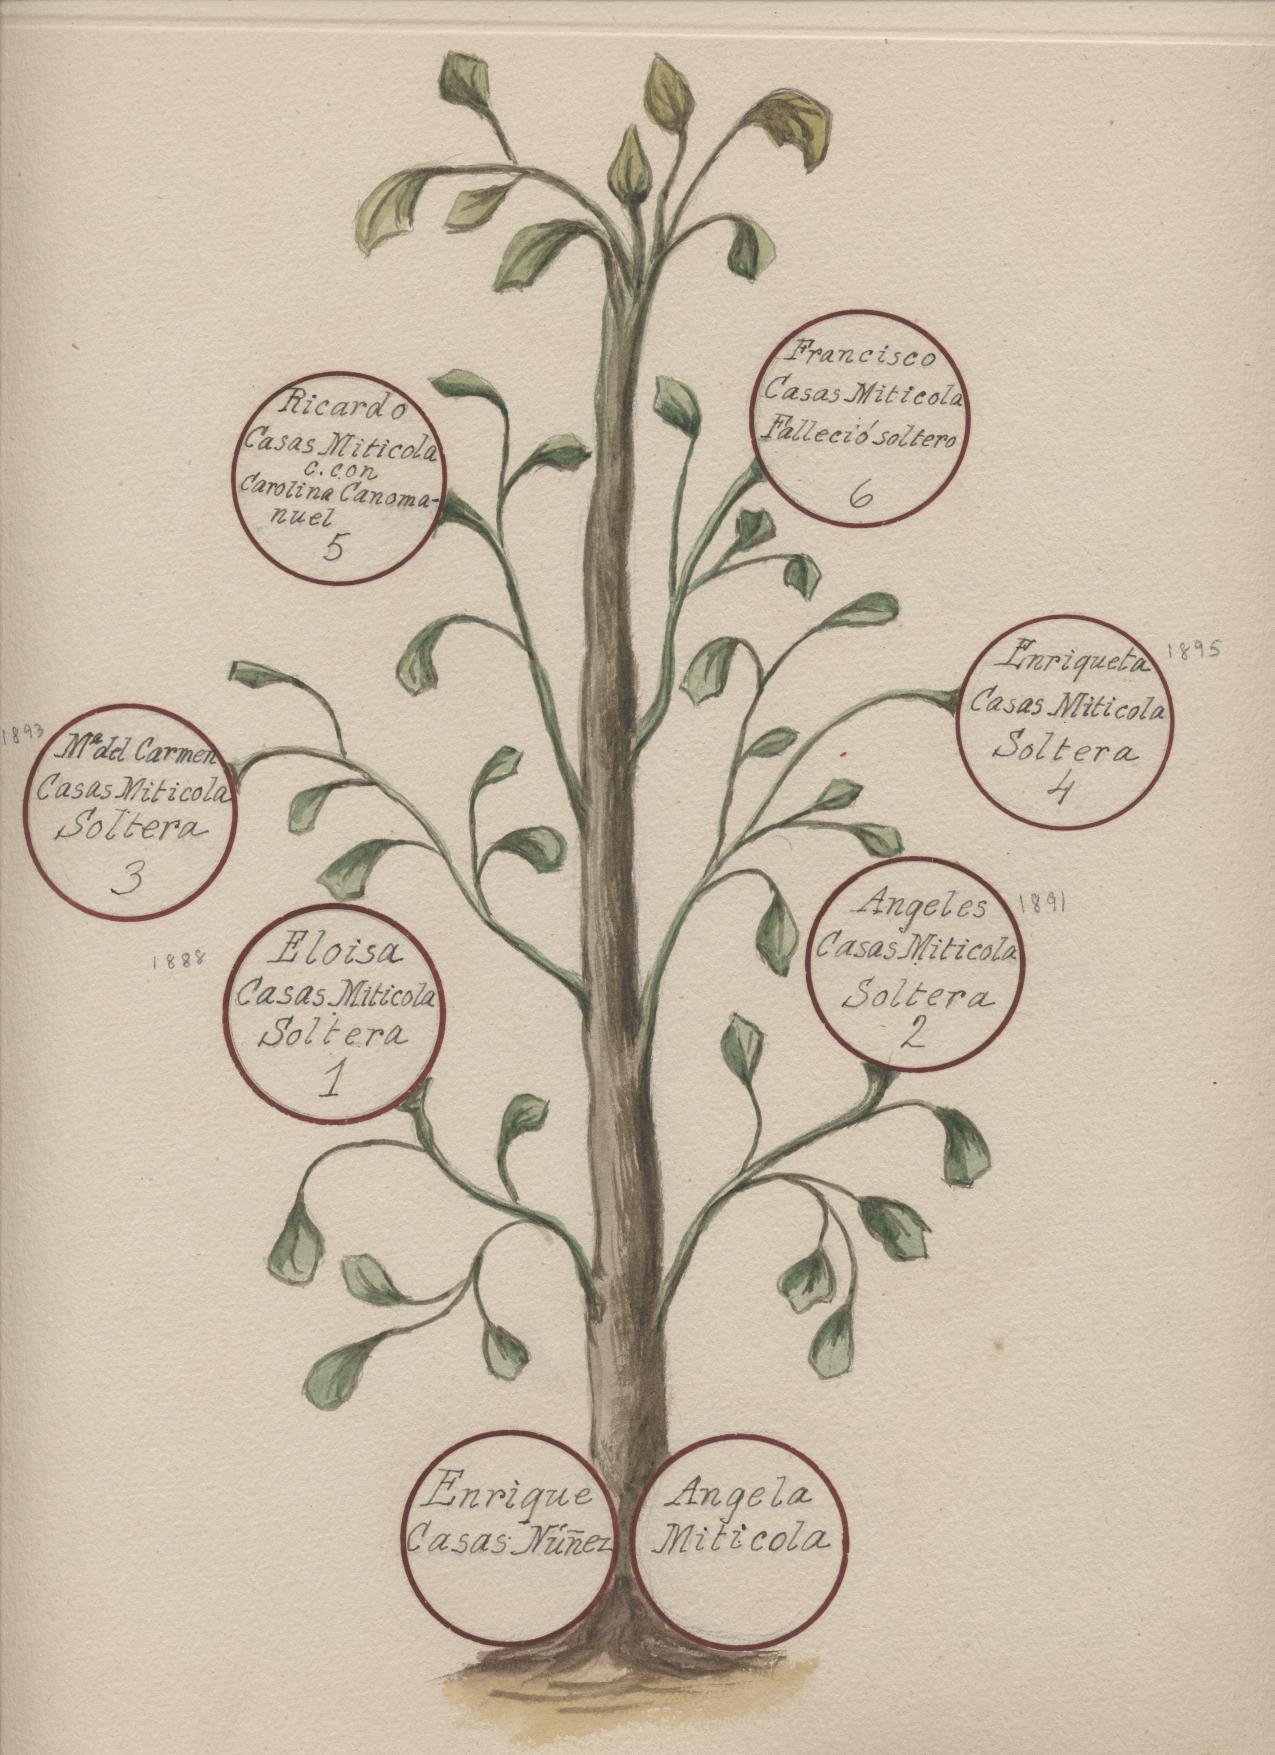 Francisco
Casas Miticola
Falleció soltero
6
Ricardo
Casas Miticola
c. con
Carolina Canoma-
nuel
5
Enriqueta
1895
Casas Miticola
Soltera
4
1893
Mª del Carmen
Casas Miticola
Soltera
3
Angeles
1891
Casas Miticola
Soltera
2
1888
Eloisa
Casas Miticola
Soltera
1
Enrique
Casas Núñez
Angela
Miticola